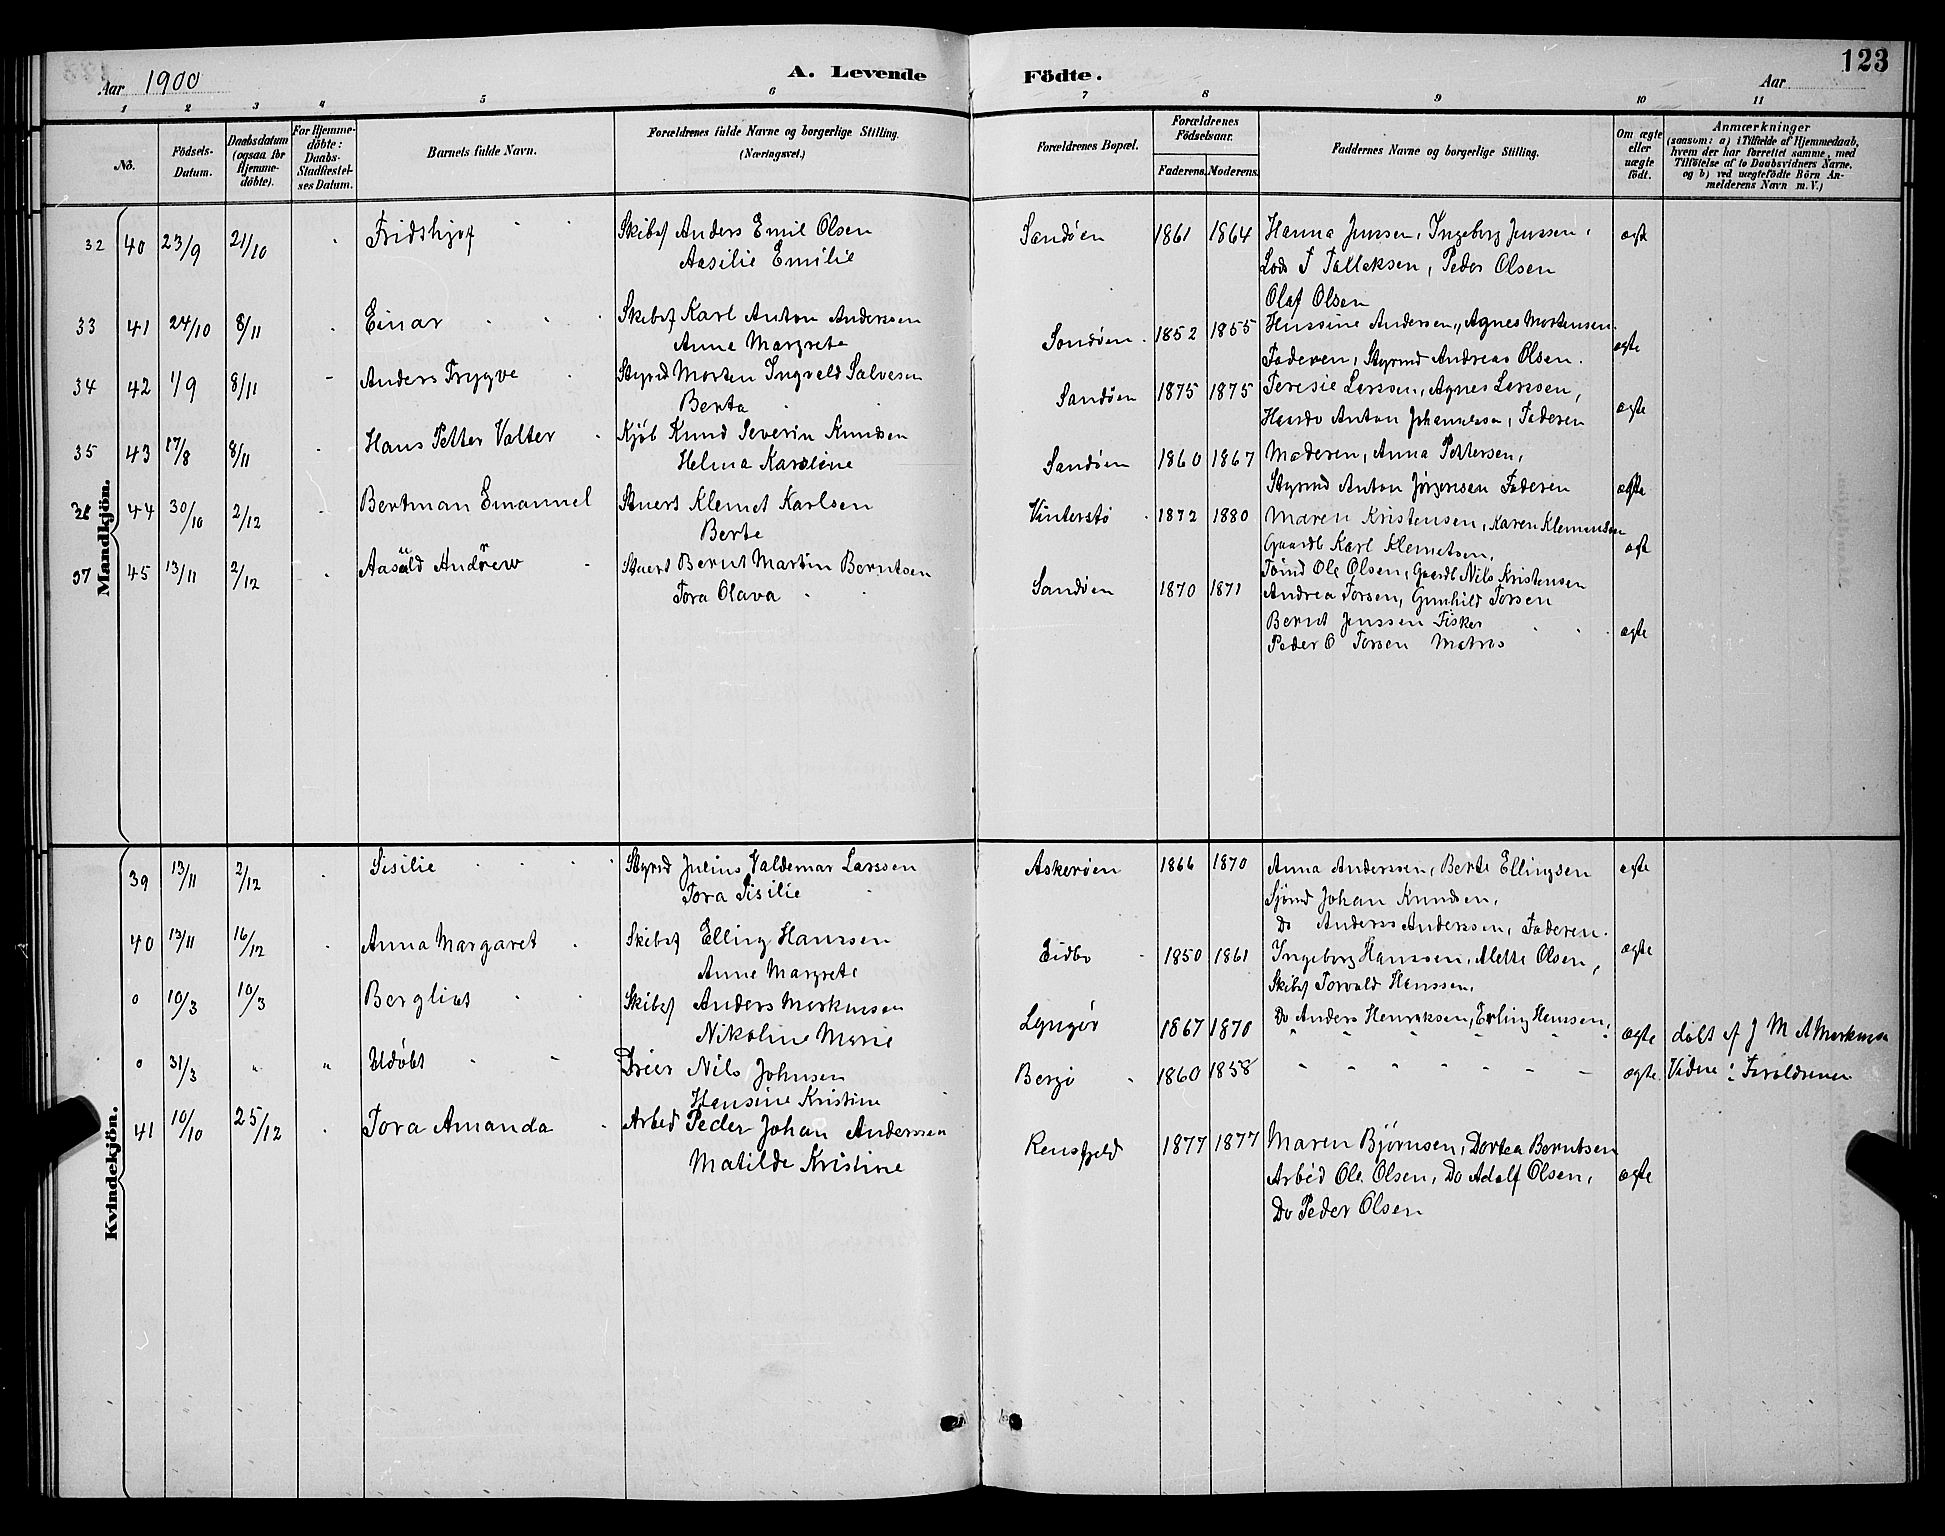 123
Aar 1900
A. Levende Födte.
Aar
1 2 3 4 5 6 7 8 9 10 11
No. Födsels-Datum. Daabsdatum (ogsaa for Hjemme-döbte). For Hjemme-döbte: Daabs-Stadfæstel-ses Datum. Barnets fulde Navn. Forældrenes fulde Navne og borgerlige Stilling. (Næringsvei.) Forældrenes Bopæl. Forældrenes Födselsaar. Faderens. Moderens. Faddernes Navne og borgerlige Stilling. Om ægte eller uægte födt. Anmærkninger (saasom: a) i Tilfælde af Hjemmedaab, hvem der har forrettet samme, med Tilföielse af to Daabsvidners Navne, og b) ved uægtefödte Börn An-melderens Navn m. V.)
Mandkjön.
32 40 23/9 21/10 Fridthjof Skibsf Anders Emil Olsen Sandøen 1861 1864 Hanna Jenssen, Ingeborg Jenssen, ægte
Aasilie Emilie Lods T Tallaksen, Peder Olsen
Olaf Olsen
33 41 24/10 8/11 Einar Skibsf Karl Anton Anderssen Sandøen 1852 1855 Hanssine Andersen, Agnes Mortensen ægte
Anne Margrete Faderen, Styrmd Andreas Olsen.
34 42 1/9 8/11 Anders Trygve Styrmd Morten Ingvald Salvesen Sandøen 1875 1875 Teresie Larssen, Agnes Larssen, ægte
Berta Anton Johannessen, Faderen
35 43 17/8 8/11 Hans Petter Valter Kjøb Knud Severin Knudsen Sandøen 1860 1867 Moderen, Anna Pettersen,
Helma Karoline Styrmd Anton Jørgensen Faderen ægte
44 30/10 2/12 Bertman Emanuel Stuert Klemet Karlsen Vinterstø 1872 1880 Maren Kristensen, Karen Klemendsen
Berte Gaardb Karl Klemetsen, ægte
Ole Olsen, Gaardb Nils Kristensen
37 45 13/11 2/12 Aasuld Andrew Stuert Bernt Martin Berntsen Sandøen 1870 1871 Andrea Torsen, Gunhild Torsen
Tora Olava Bernt Jenssen Fisker ægte
Peder O Torsen Matros
Kvindekjön.
39 13/11 2/12 Sisilie Styrmd Julius Valdemar Larssen Askerøen 1866 1870 Anna Anderssen, Berte Ellingsen ægte
Tora Sisilie Sjömd Johan Knudsen,
Do Anders Anderssen, Faderen.
40 13/11 16/12 Anna Margaret Skibsf Elling Hanssen Eidbo 1850 1861 Ingeborg Hanssen, Alette Olsen, ægte
Anne Margrete Skibsf Torvald Hanssen,
0 10/3 10/3 Bergliot Skibsf Anders Markussen Lyngør 1867 1870 Do Anders Henriksen, Erling Hanssen, ægte døbt af J M A Markussen
Nikoline Marie
0 31/3 " " Udøbt Dreier Nils Johnsen Bergø 1860 1858 " " " " " ægte Vidne: Forældrene
Hansine Kristine
41 10/10 25/12 Tora Amanda Arbed Peder Johan Anderssen Rensfjeld 1877 1877 Maren Bjørnsen, Dortea Berntsen
Matilde Kristine Arbed Ole Olsen, Do Adolf Olsen, ægte
Do Peder Olsen